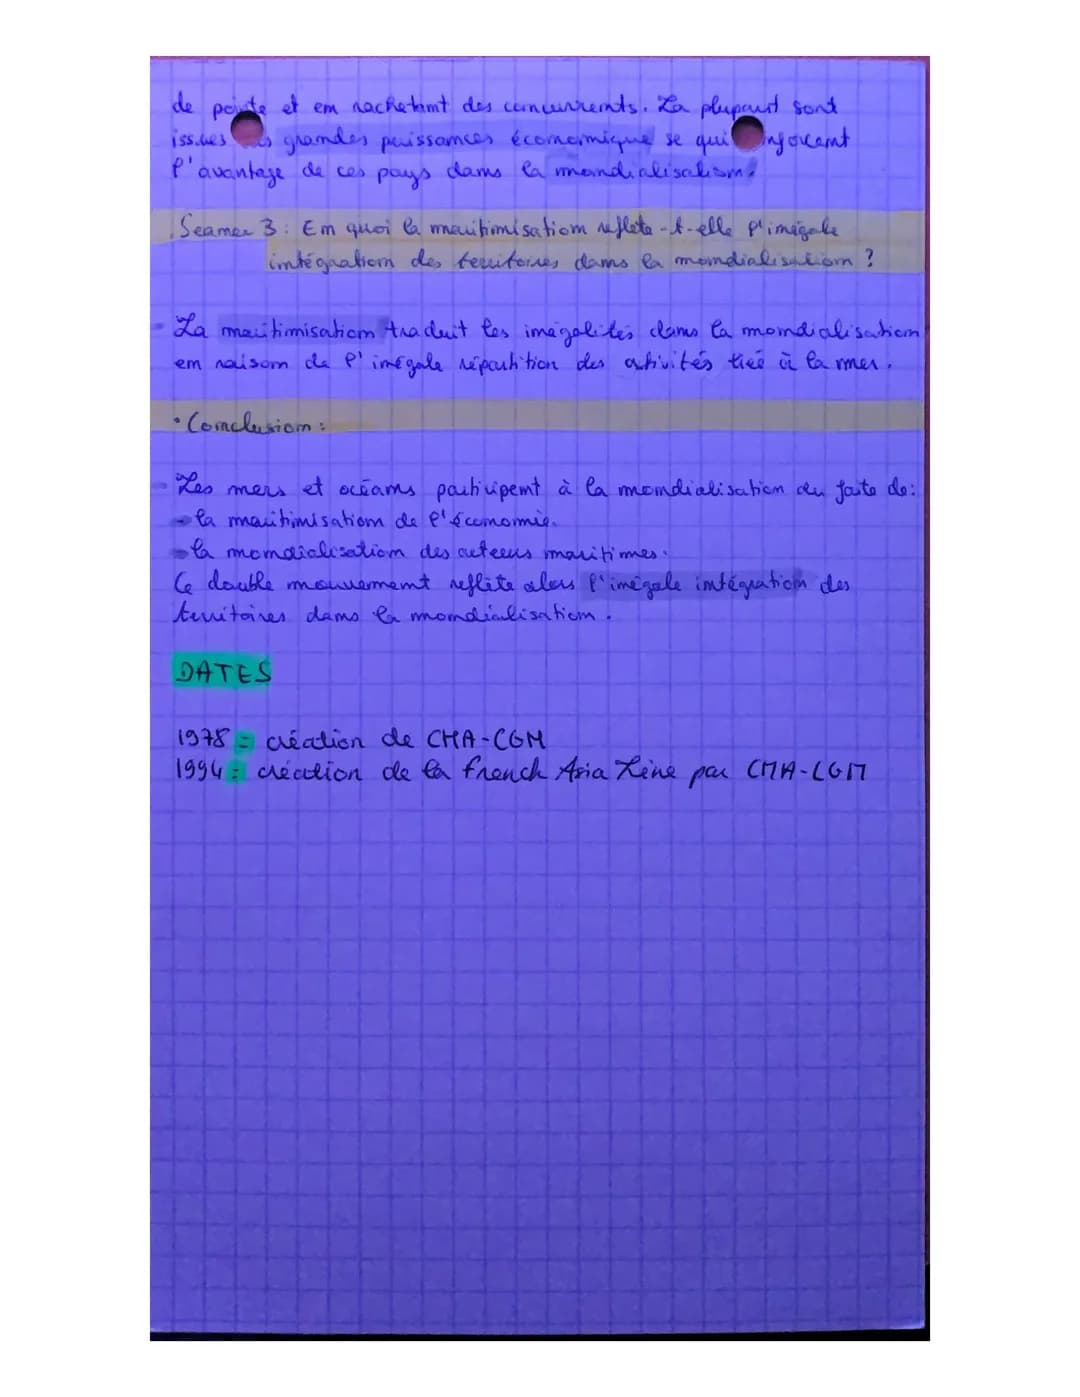 de pointe et en rachetant des concurrents. La plupart sont
issues grandes puissances économique se qui
l'avantage de ces pays dans la mondialisation.
Seance 3 : En quoi la maritimisation reflète-t-elle l'inégale
intégration des territoires dans la mondialisation ?
- La maritimisation traduit les inégalités dans la mondialisation
en raison de l'inégale répartition des ativités lieé à la mer.
• Conclusion :
- Les mers et océans participent à la mondialisation du faite de :
- la maritimisation de l'économie.
- la mondialisation des acteurs maritimes.
Ce double mouvement reflète alors l'inégale intégration des
territoires dans la mondialisation.
DATES
1978 = création de CMA-CGM
1994 = création de la french Asia Line par CMA-CGM